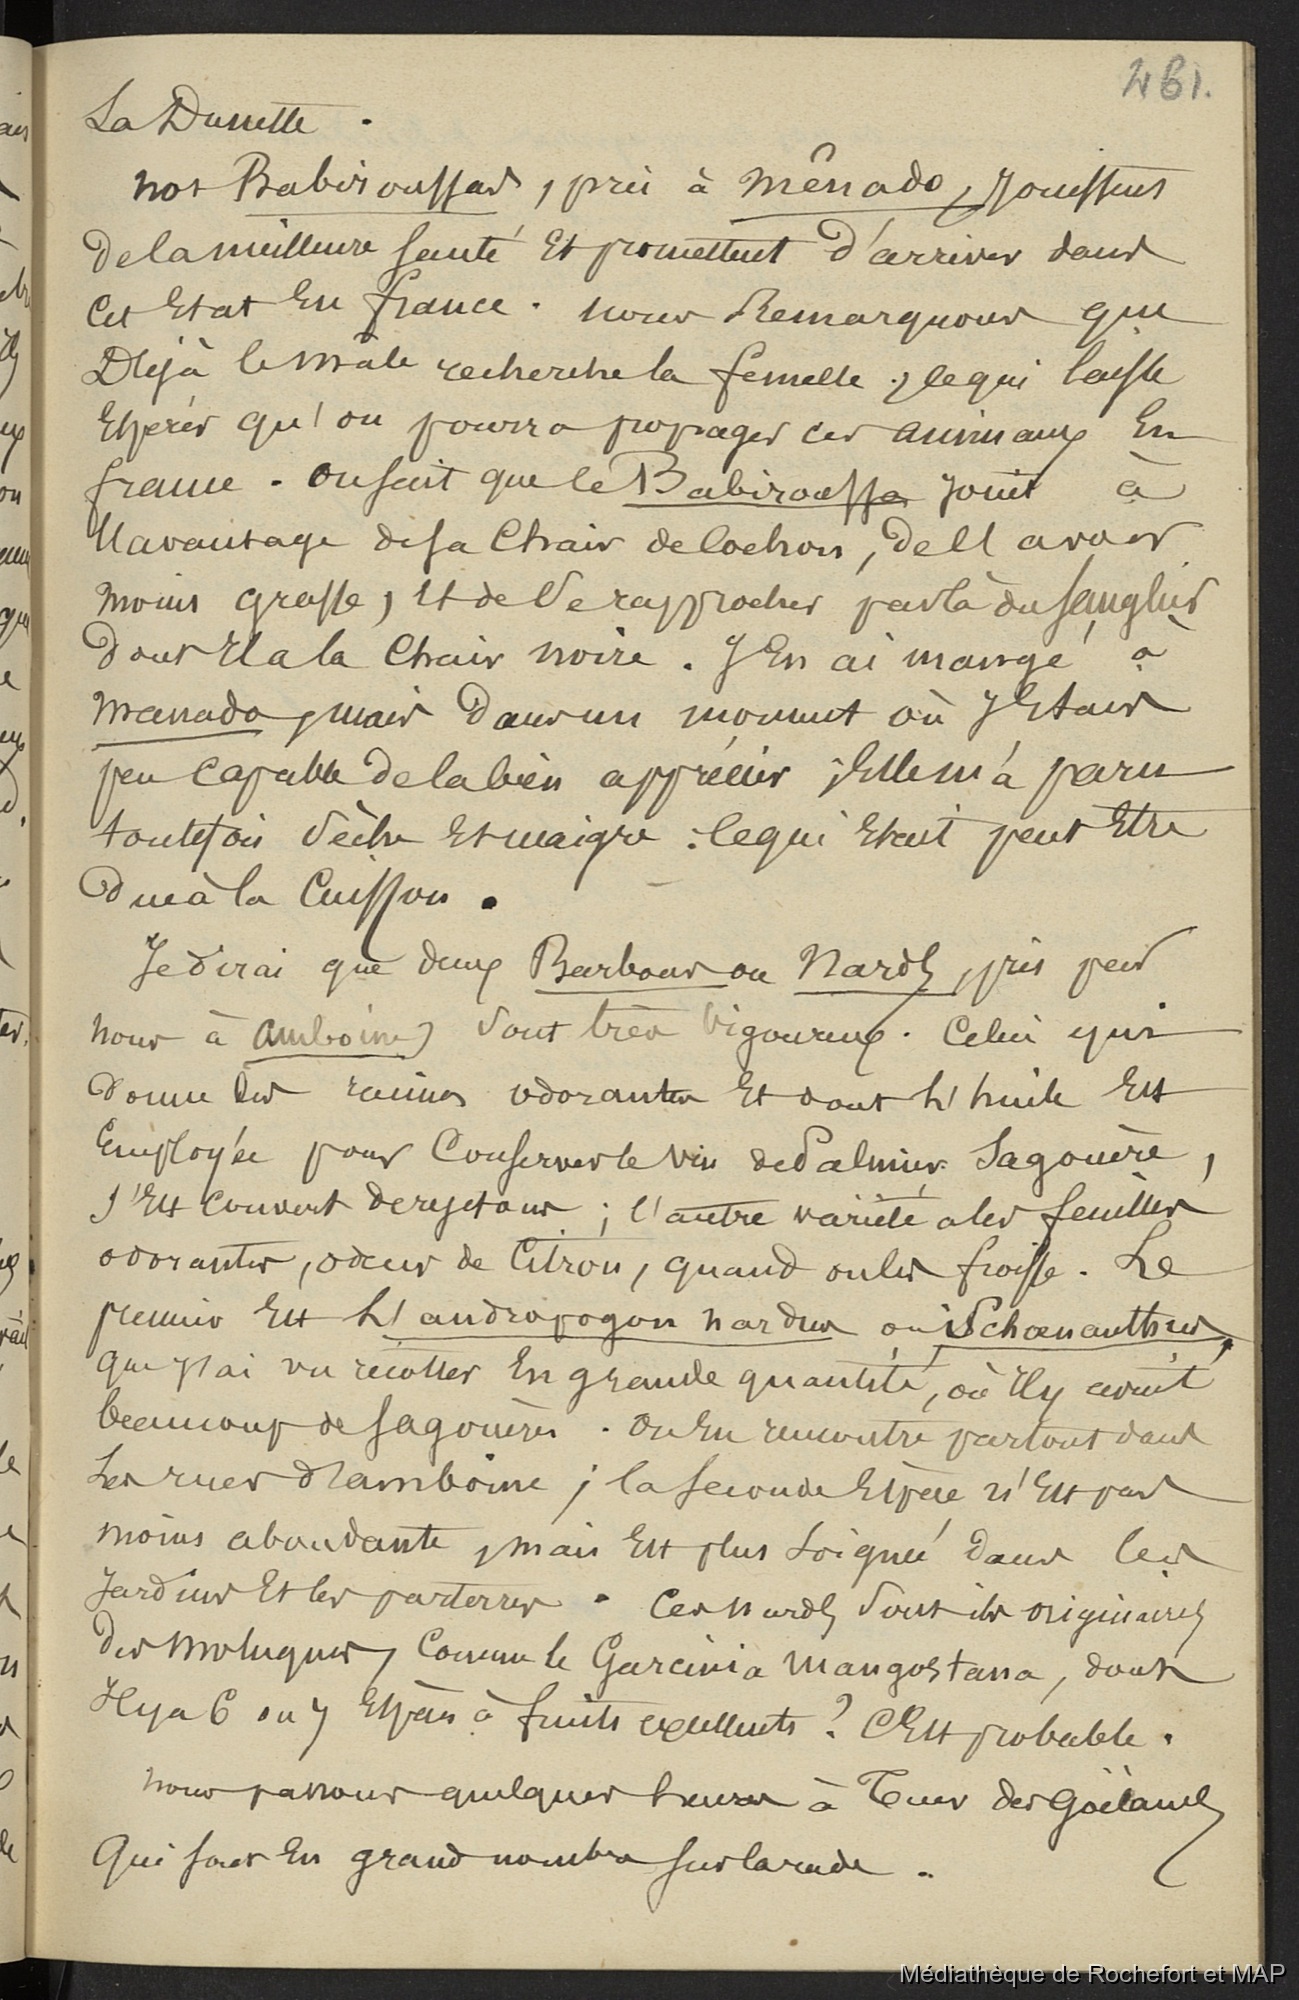 261.
La Dunette.
nos Babiroussas, pris à Mênado, jouissent
de la meilleure santé et promettent d'arriver dans
cet Etat En france. nous Remarquons que
Déjà le mâle recherche la femelle, ce qui laisse
Espérer qu'on pourra propager ces animaux En
france. on sait que le Babiroussa joint à
l'avantage de sa Chair de Cochon, de l'avoir
moins grasse, et de se rapprocher par là du sanglier
dont il a la Chair noire. J'En ai mangé à
Manado, mais dans un moment où j'Etais
peu capable de la bien apprécier; Elle m'a paru
toutefois sèche Et maigre: ce qui était peut Etre
due à la Cuisson.
Je dirai que deux Barbons ou Nards, pris par
nous à amboine, sont très vigoureux. Celui qui
donne des racines odorantes Et dont l'huile Est
Employée pour Conserver le vin de Palmier Sagouère,
s'Est couvert de rejetons; l'autre variété a les feuilles
odorantes, odeur de Citron, quand on les froisse. Le
premier Est l'andropogon nardus ou Schœnanthus,
que j'ai vu récolter En grande quantité, où il y avait
beaucoup de sagouères. on En rencontre partout dans
Les rues d'amboine; la seconde Espèce n'Est pas
moins abondante, mais Est plus soignée dans les
jardins Et les parterres. Ces nards sont ils originaires
des moluques, Comme le Garcinia mangostana, dont
Il y a 6 ou 7 Espèces à fruits excellents? C'Est probable.
nous passons quelques heures à Tuer des Goëlands
Qui sont En grand nombre sur la rade.
Médiathèque de Rochefort et MAP